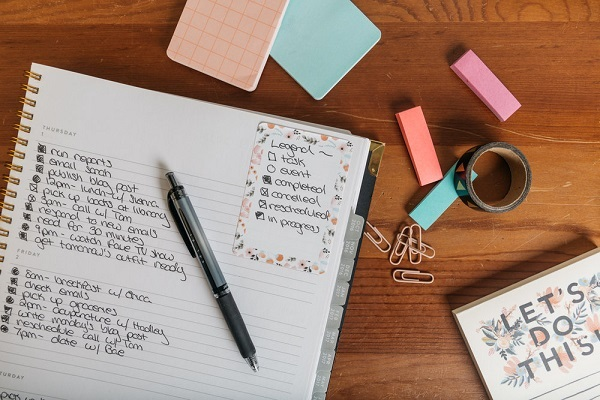 THURSDAY
1
run reports
email Sarah
publish blog post
12pm - lunch w/ Shana
pick up books at library
3pm - call w/ Tam
respond to new emails
read for 30 minutes
9pm - watch fave TV show
get tomorrow's outfit ready
FRIDAY
2
8am - breakfast w/ Erica
check emails
pick up groceries
2pm - acupuncture w/ Hadley
write monday's blog post
reschedule call w/ Tam
7pm - date w/ Bae
SATURDAY
pick up
Legend
task
event
completed
cancelled
rescheduled
in progress
LET'S
DO
THIS!